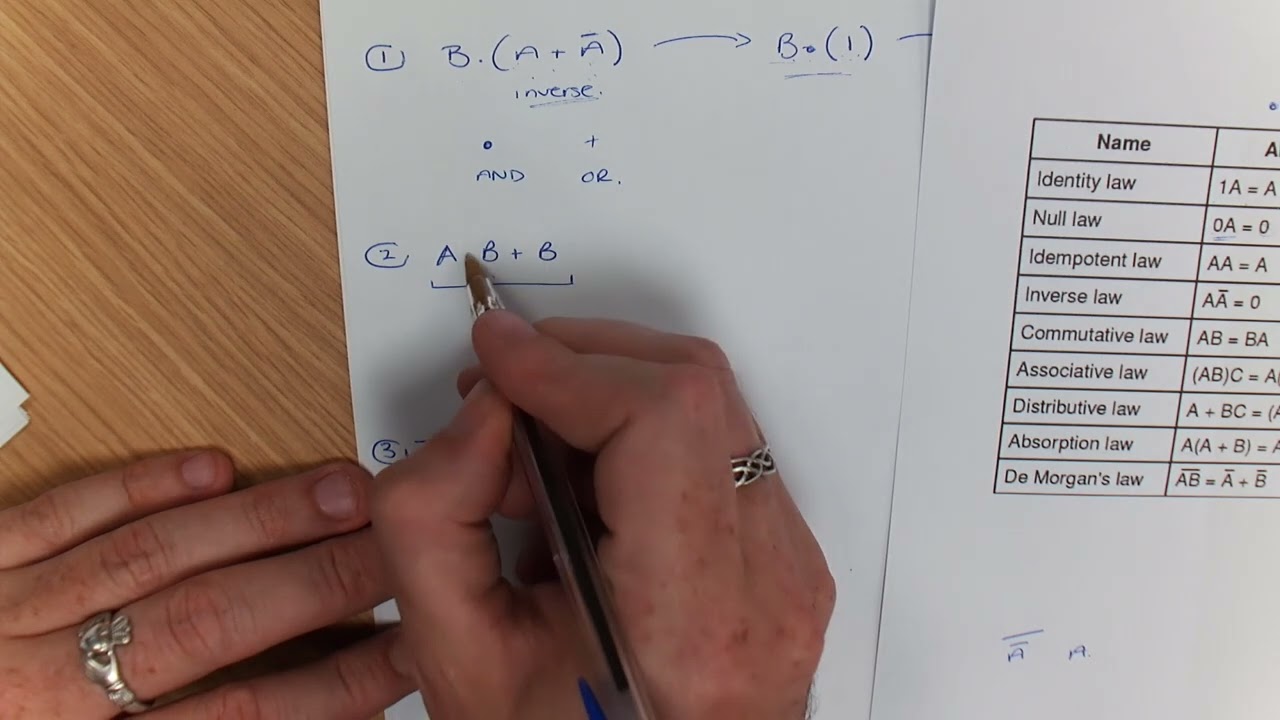 ① B.(A + Ā) → B•(1)
inverse.
• +
AND OR.
② A B + B
③
Name
Identity law 1A = A
Null law 0A = 0
Idempotent law AA = A
Inverse law AĀ = 0
Commutative law AB = BA
Associative law (AB)C =
Distributive law A + BC = (
Absorption law A(A + B) =
De Morgan's law A̅B̅ = Ā + B̅
A̿ A.